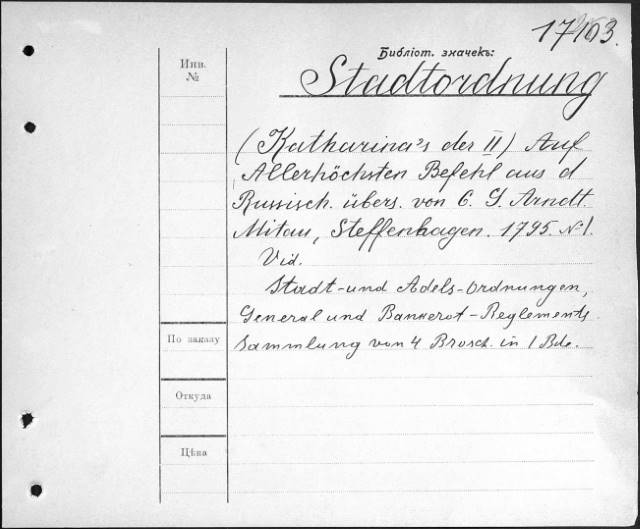 17103.
Библіот. значекъ:
Инв.
№
Stadtordnung
(Katharina's der II) Auf
Allerhöchsten Befehl aus d
Russisch. übers. von C. G. Arndt.
Mitau, Steffenhagen. 1795. №1.
Vid.
Stadt- und Adels-Ordnungen,
General und Bankerot-Reglements
Sammlung von 4 Brosch. in 1 Bde.
По заказу
Откуда
Цѣна